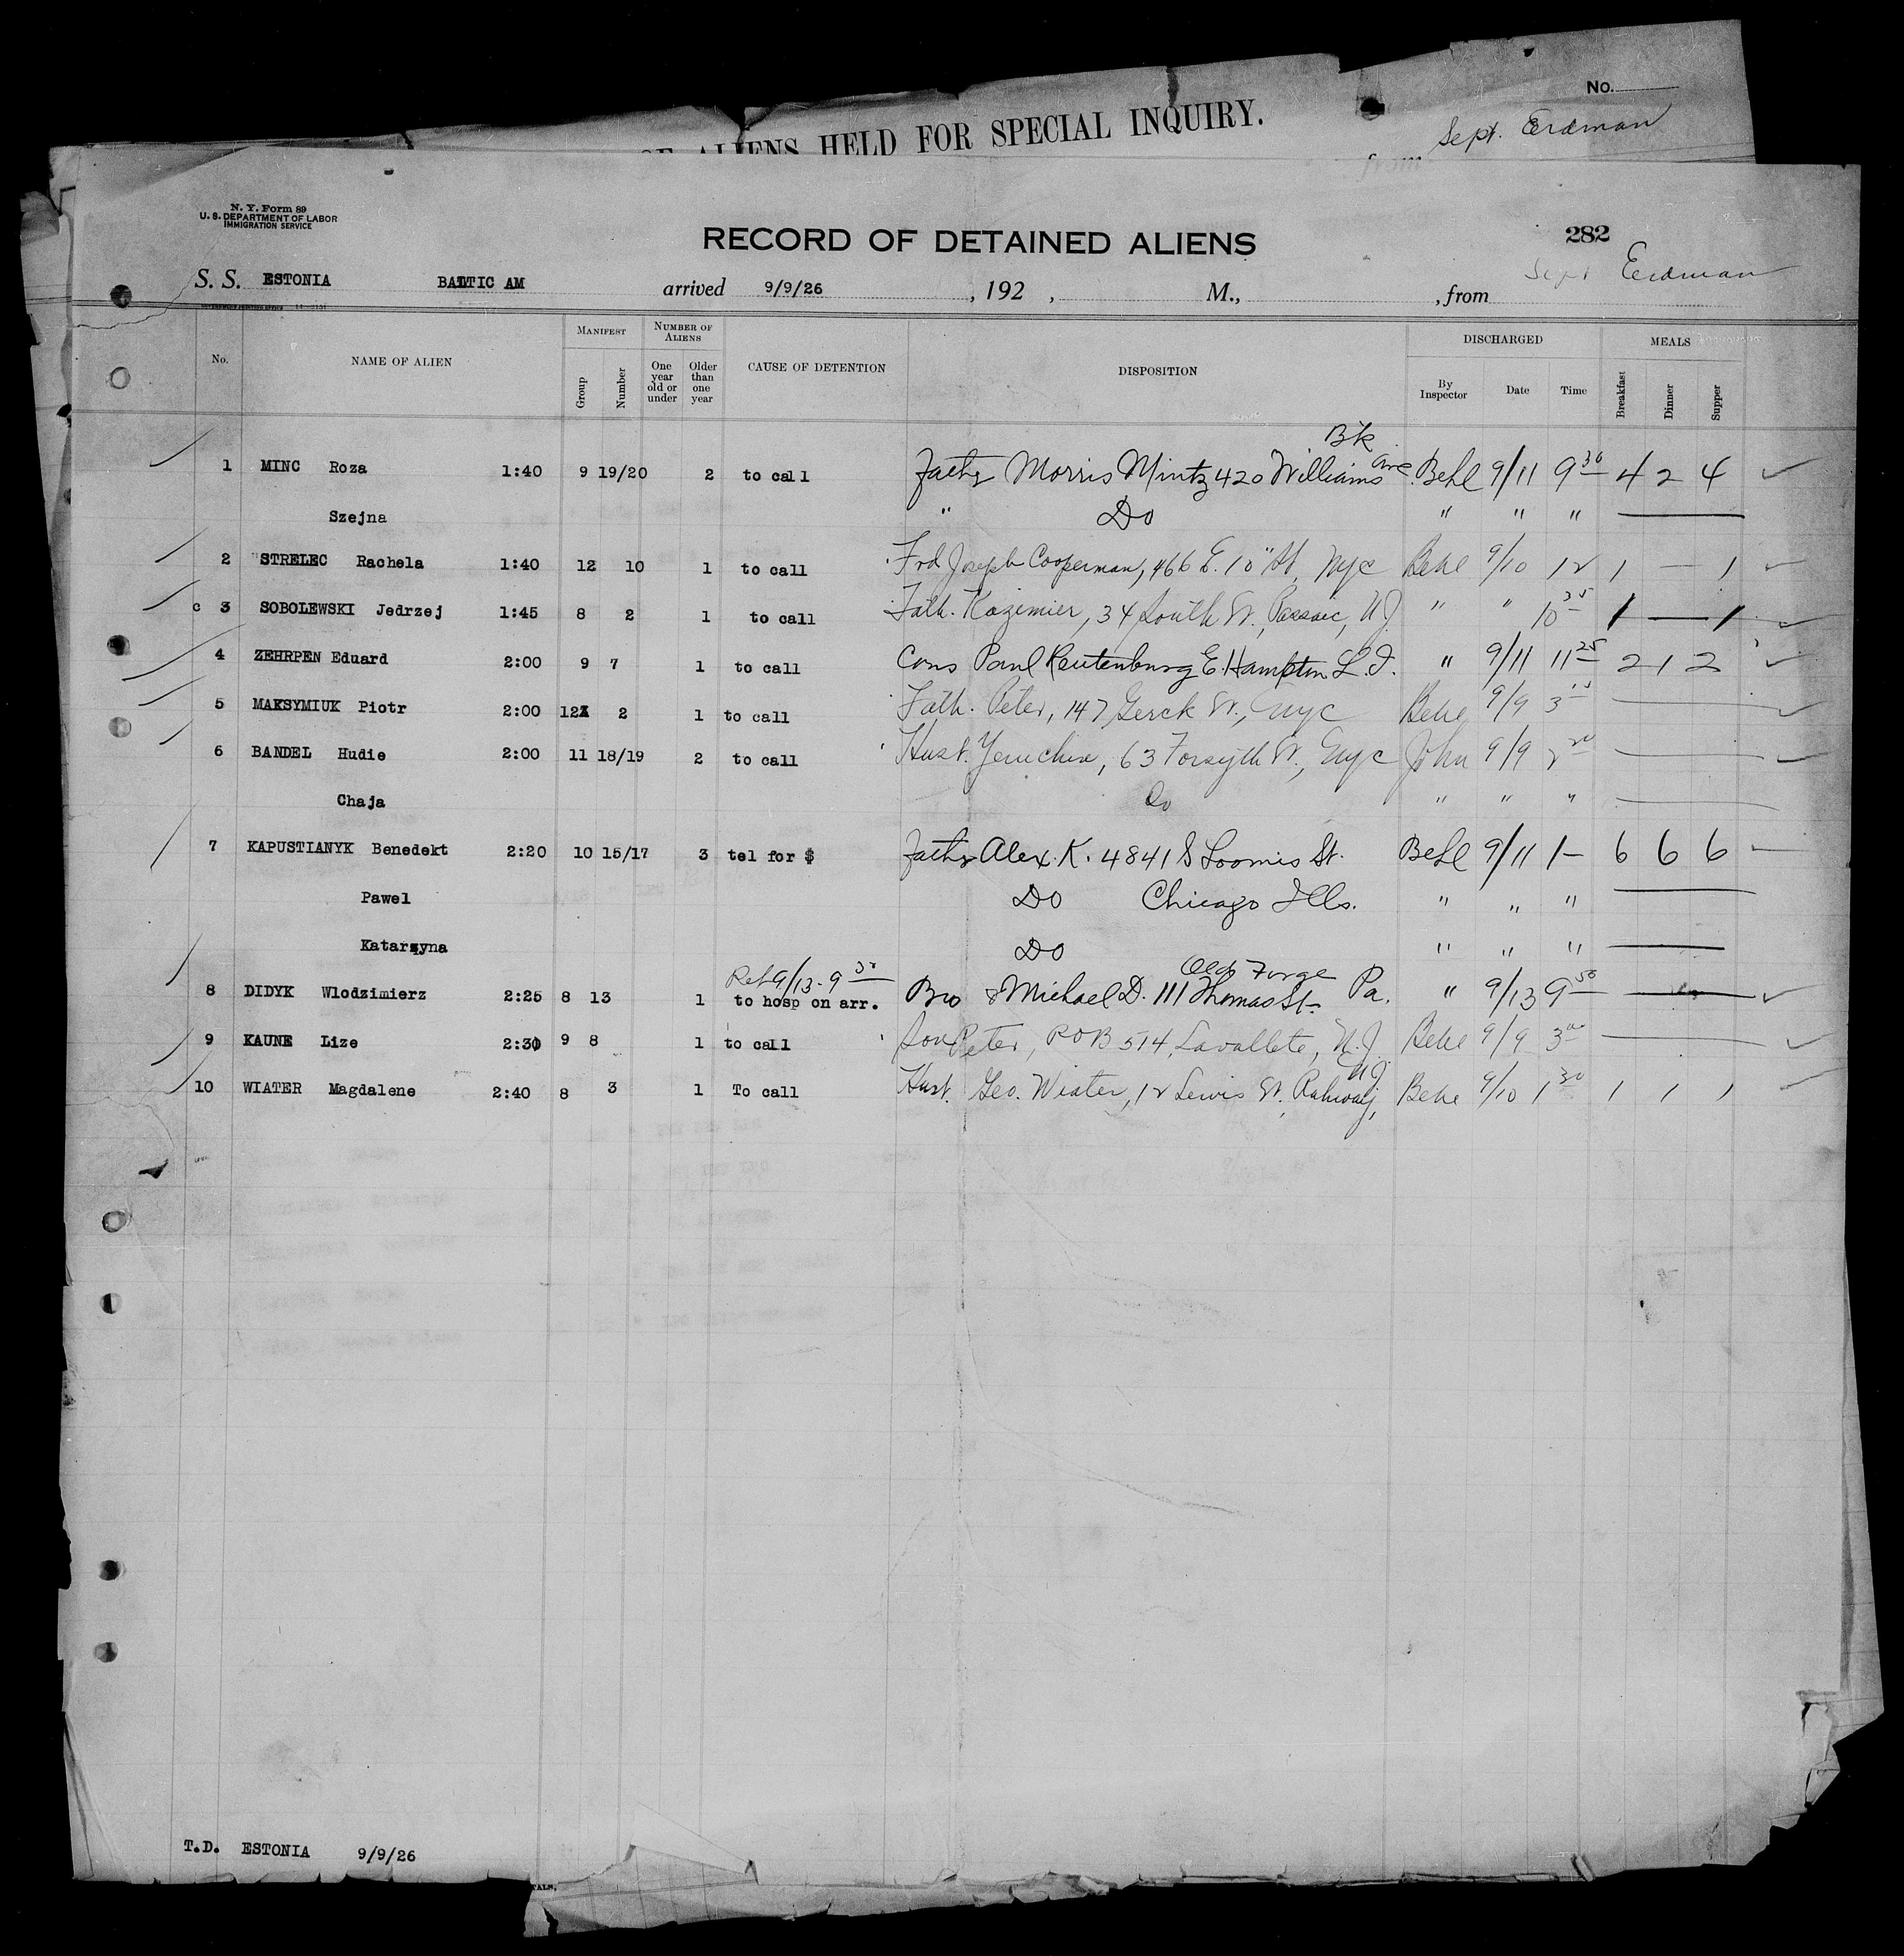 No.
OF ALIENS HELD FOR SPECIAL INQUIRY.
Sept. Erdman
from
N. Y. Form 89
U. S. DEPARTMENT OF LABOR
IMMIGRATION SERVICE
RECORD OF DETAINED ALIENS
282
Sept Erdman
S. S. ESTONIA BALTIC AM arrived 9/9/26, 192 , M., , from
No. NAME OF ALIEN MANIFEST Group Number NUMBER OF ALIENS One year old or under Older than one year CAUSE OF DETENTION DISPOSITION DISCHARGED By Inspector Date Time MEALS Breakfast Dinner Supper
Bk
1 MINC Roza 1:40 9 19/20 2 to call Fathr Morris Mintz 420 Williams Ave. Behl 9/11 9 30 4 2 4
Szejna " Do " " "
2 STRELEC Rachela 1:40 12 10 1 to call Frd Joseph Cooperman, 466 E. 10" St, NYC Behl 9/10 12 1 — 1
c 3 SOBOLEWSKI Jedrzej 1:45 8 2 1 to call Fath. Kazimier, 34 South St., Passaic, N.J. " " 10 35 1 — 1
4 ZEHRPEN Eduard 2:00 9 7 1 to call Cous Paul Reutenburg E. Hampton L.I. " 9/11 11 25 2 1 2
5 MAKSYMIUK Piotr 2:00 12 2 1 to call Fath. Peter, 147 Gerck St., NYC Behl 9/9 3
6 BANDEL Hudie 2:00 11 18/19 2 to call Husb. 63 Forsyth St., NYC John 9/9 2
Chaja Do " " "
7 KAPUSTIANYK Benedekt 2:20 10 15/17 3 tel for $ Fathr Alex. K. 4841 S Loomis St. Behl 9/11 1— 6 6 6
Pawel Do Chicago Ills. " " "
Katarzyna Do " " "
Ret 9/13 - 9 30 Old Forge
8 DIDYK Wlodzimierz 2:25 8 13 1 to hosp on arr. Bro Michael D. 111 Thomas St. Pa. " 9/13 9 50
9 KAUNE Lize 2:30 9 8 1 to call Son Peter, POB 514, Lavallete, N.J. Behl 9/9 3 00
10 WIATER Magdalene 2:40 8 3 1 To call Husb. Geo. Wiater, 12 Lewis St. Rahway, N.J. Behl 9/10 1 30 1 1 1
T.D. ESTONIA 9/9/26